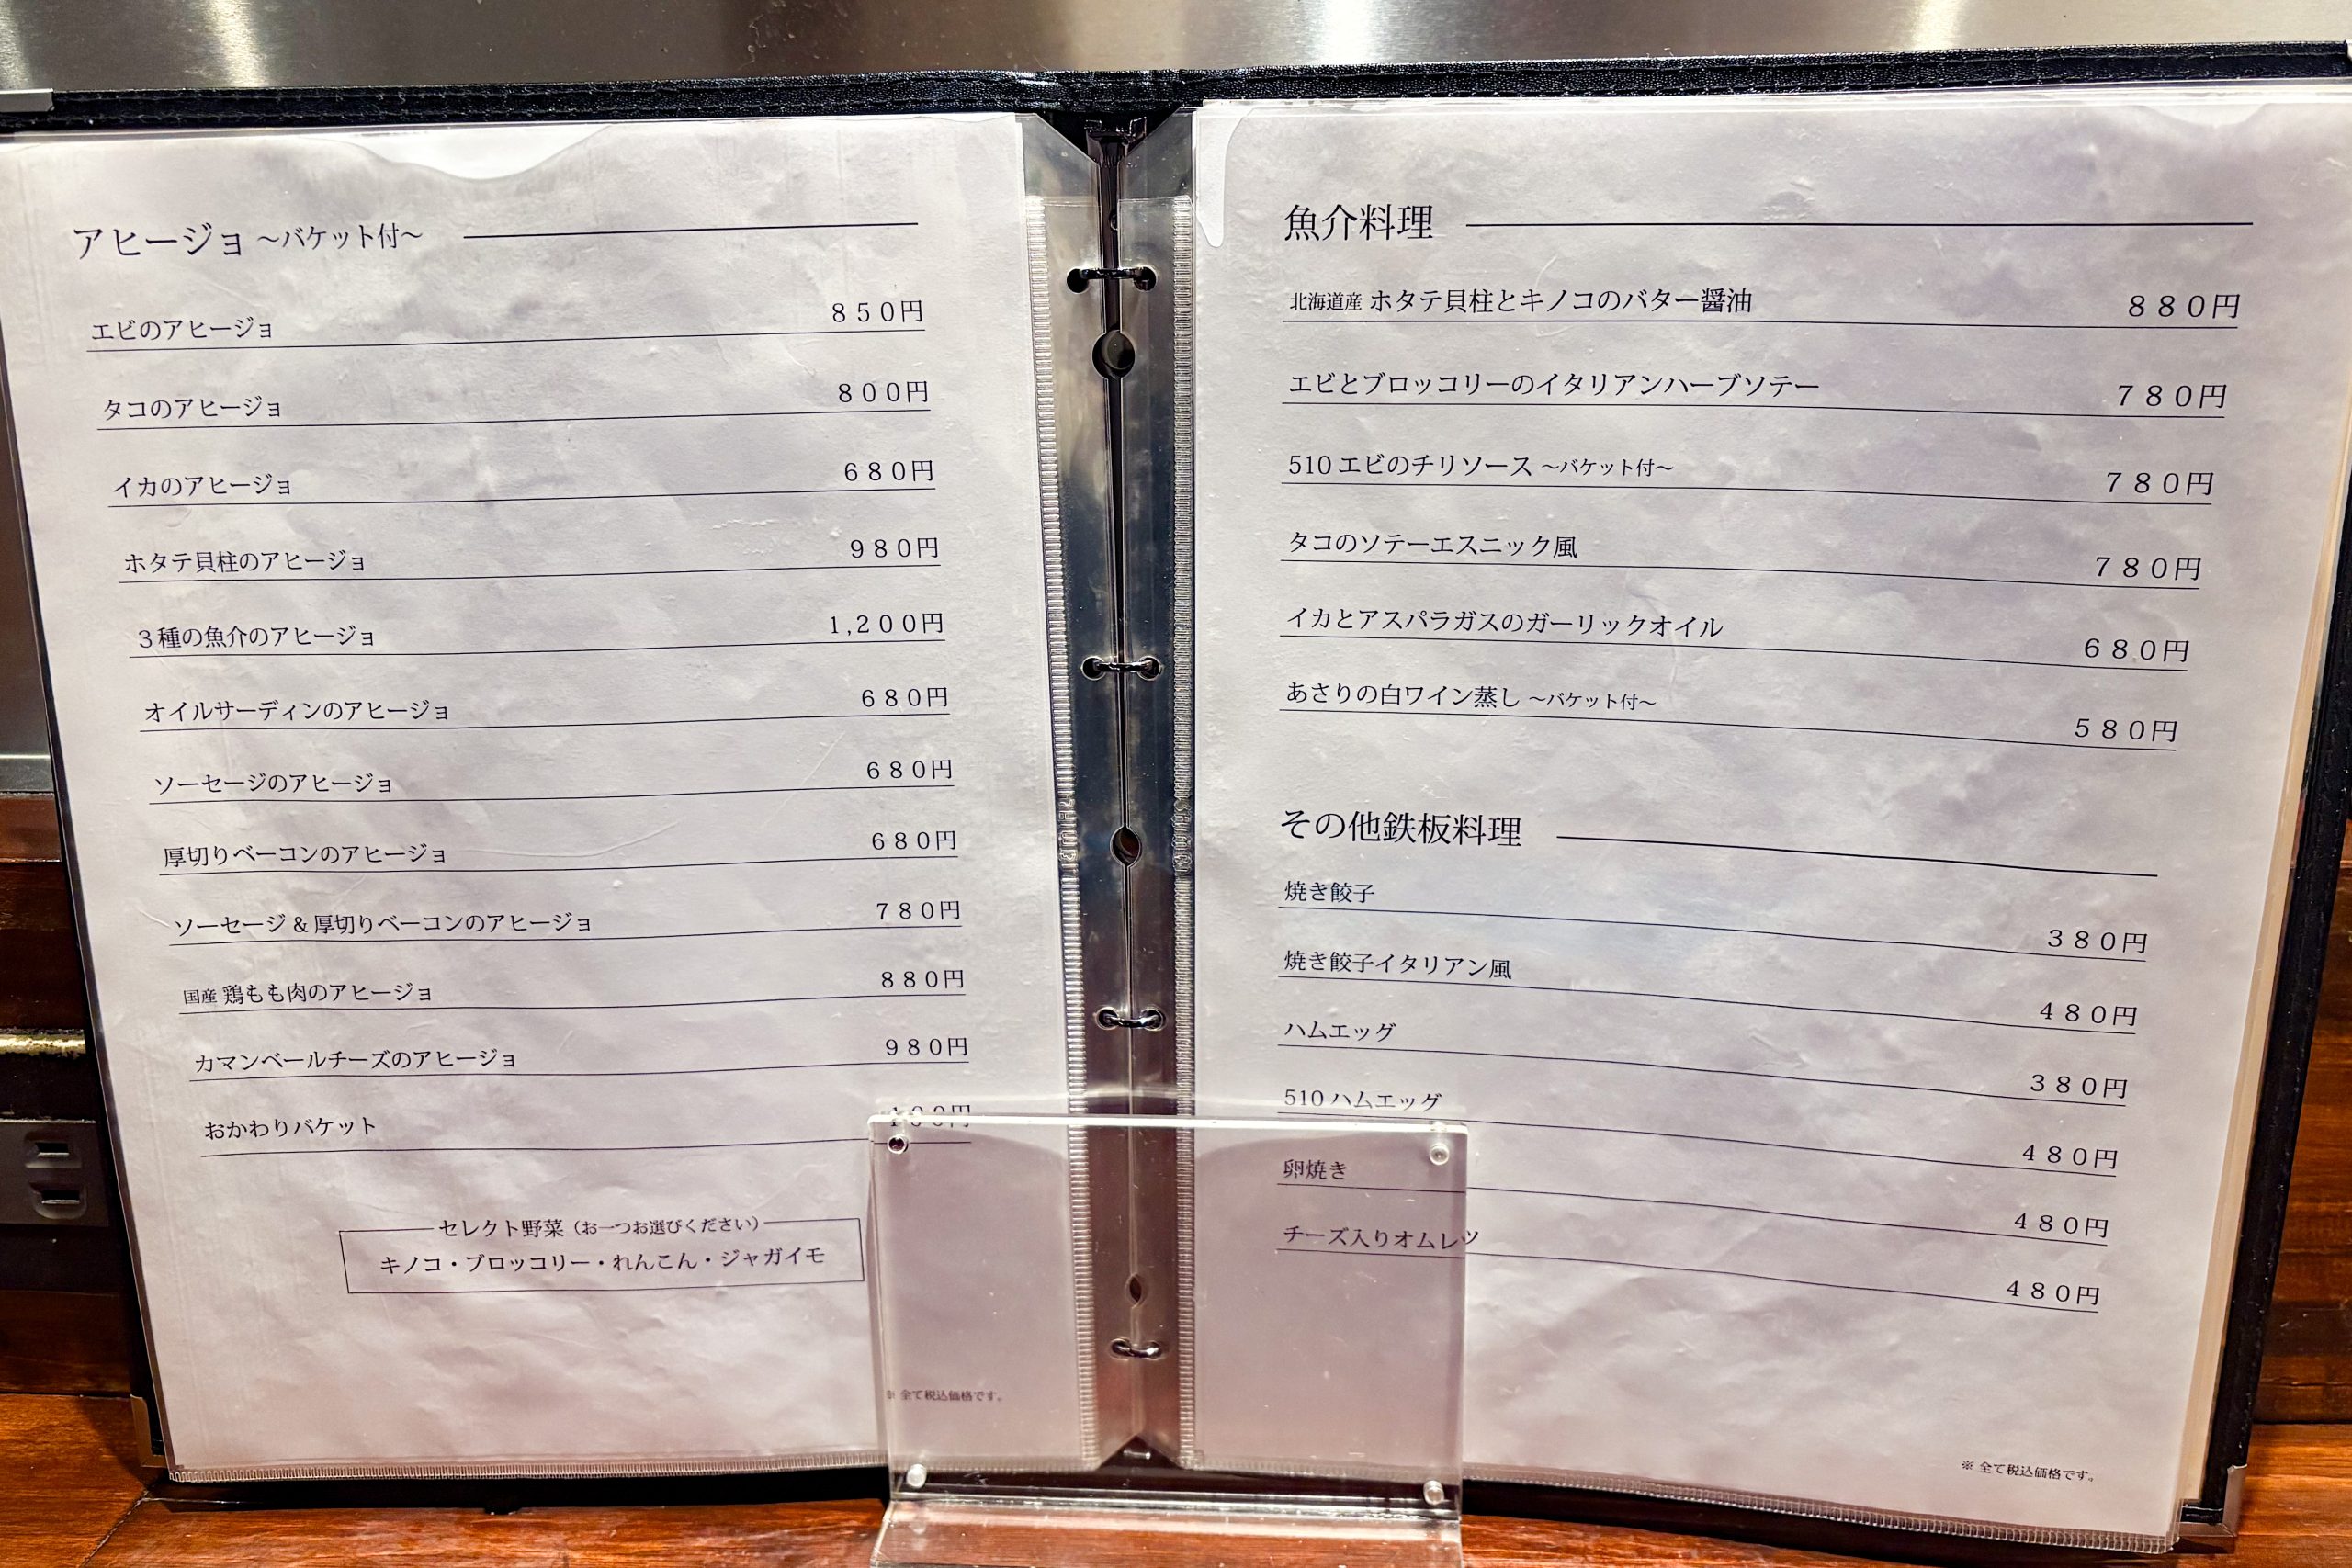 アヒージョ ～バケット付～
エビのアヒージョ 850円
タコのアヒージョ 800円
イカのアヒージョ 680円
ホタテ貝柱のアヒージョ 980円
3種の魚介のアヒージョ 1,200円
オイルサーディンのアヒージョ 680円
ソーセージのアヒージョ 680円
厚切りベーコンのアヒージョ 680円
ソーセージ&厚切りベーコンのアヒージョ 780円
国産 鶏もも肉のアヒージョ 880円
カマンベールチーズのアヒージョ 980円
おかわりバケット 100円
セレクト野菜（お一つお選びください）
キノコ・ブロッコリー・れんこん・ジャガイモ
※ 全て税込価格です。
魚介料理
北海道産 ホタテ貝柱とキノコのバター醤油 880円
エビとブロッコリーのイタリアンハーブソテー 780円
510 エビのチリソース ～バケット付～ 780円
タコのソテーエスニック風 780円
イカとアスパラガスのガーリックオイル 680円
あさりの白ワイン蒸し ～バケット付～ 580円
その他鉄板料理
焼き餃子 380円
焼き餃子イタリアン風 480円
ハムエッグ 380円
510 ハムエッグ 480円
卵焼き 480円
チーズ入りオムレツ 480円
※ 全て税込価格です。